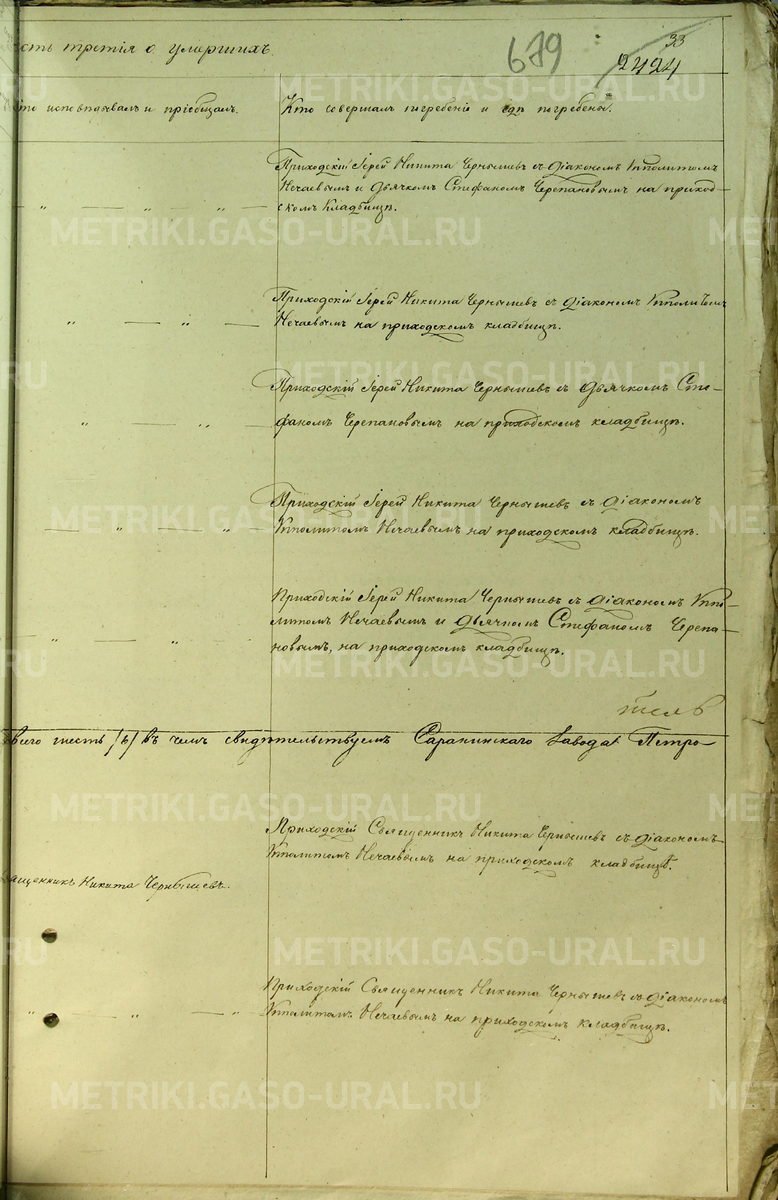 сть третія о умершихъ.
679
33
2424
то исповѣдывалъ и пріобщалъ.
Кто совершалъ погребеніе и гдѣ погребены.
Приходскій Іерей Никита Чернышевъ съ діакономъ Ипполитомъ
Нечаевымъ и дьячкомъ Стефаномъ Черепановымъ на приход-
скомъ кладбищѣ.
Приходскій Іерей Никита Чернышевъ съ діакономъ Ипполитомъ
Нечаевымъ на приходскомъ кладбищѣ.
Приходскій Іерей Никита Чернышевъ съ дьячкомъ Сте-
фаномъ Черепановымъ на приходскомъ кладбищѣ.
Приходскій Іерей Никита Чернышевъ съ діакономъ
Ипполитомъ Нечаевымъ на приходскомъ кладбищѣ.
Приходскій Іерей Никита Чернышевъ съ діакономъ Иппо-
литомъ Нечаевымъ и дьячкомъ Стефаномъ Черепа-
новымъ, на приходскомъ кладбищѣ.
всего шесть /6/ въ чемъ свидѣтельствуемъ Саранинскаго Завода Петро-
Приходскій Священникъ Никита Чернышевъ съ діакономъ
Ипполитомъ Нечаевымъ на приходскомъ кладбищѣ.
ященникъ Никита Чернышевъ.
Приходскій Священникъ Никита Чернышевъ съ діакономъ
Ипполитомъ Нечаевымъ на приходскомъ кладбищѣ.
METRIKI.GASO-URAL.RU